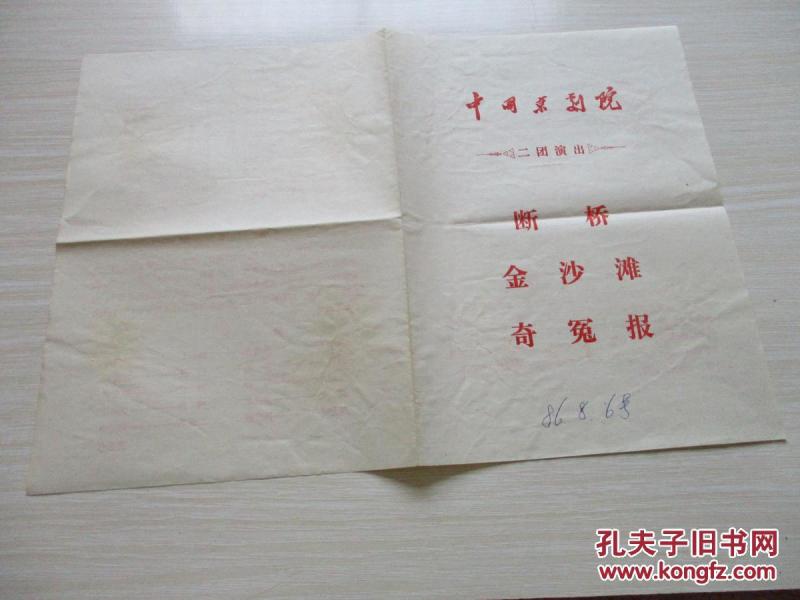 中国京剧院
二团演出
断桥
金沙滩
奇冤报
86.8.6号
孔夫子旧书网
www.kongfz.com